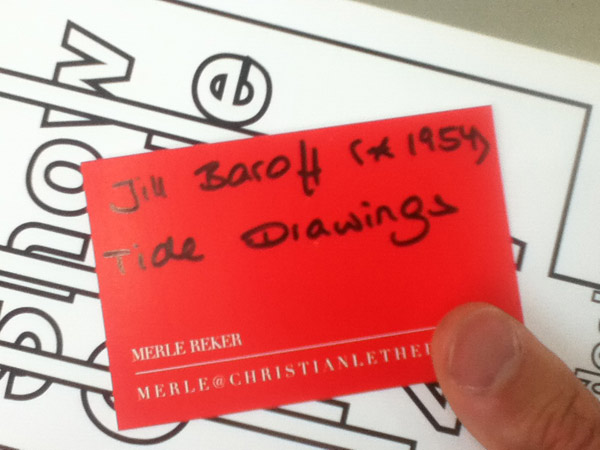 Show
Jill Baroff (* 1954)
Tide Drawings
MERLE REKER
MERLE@CHRISTIANLETHER